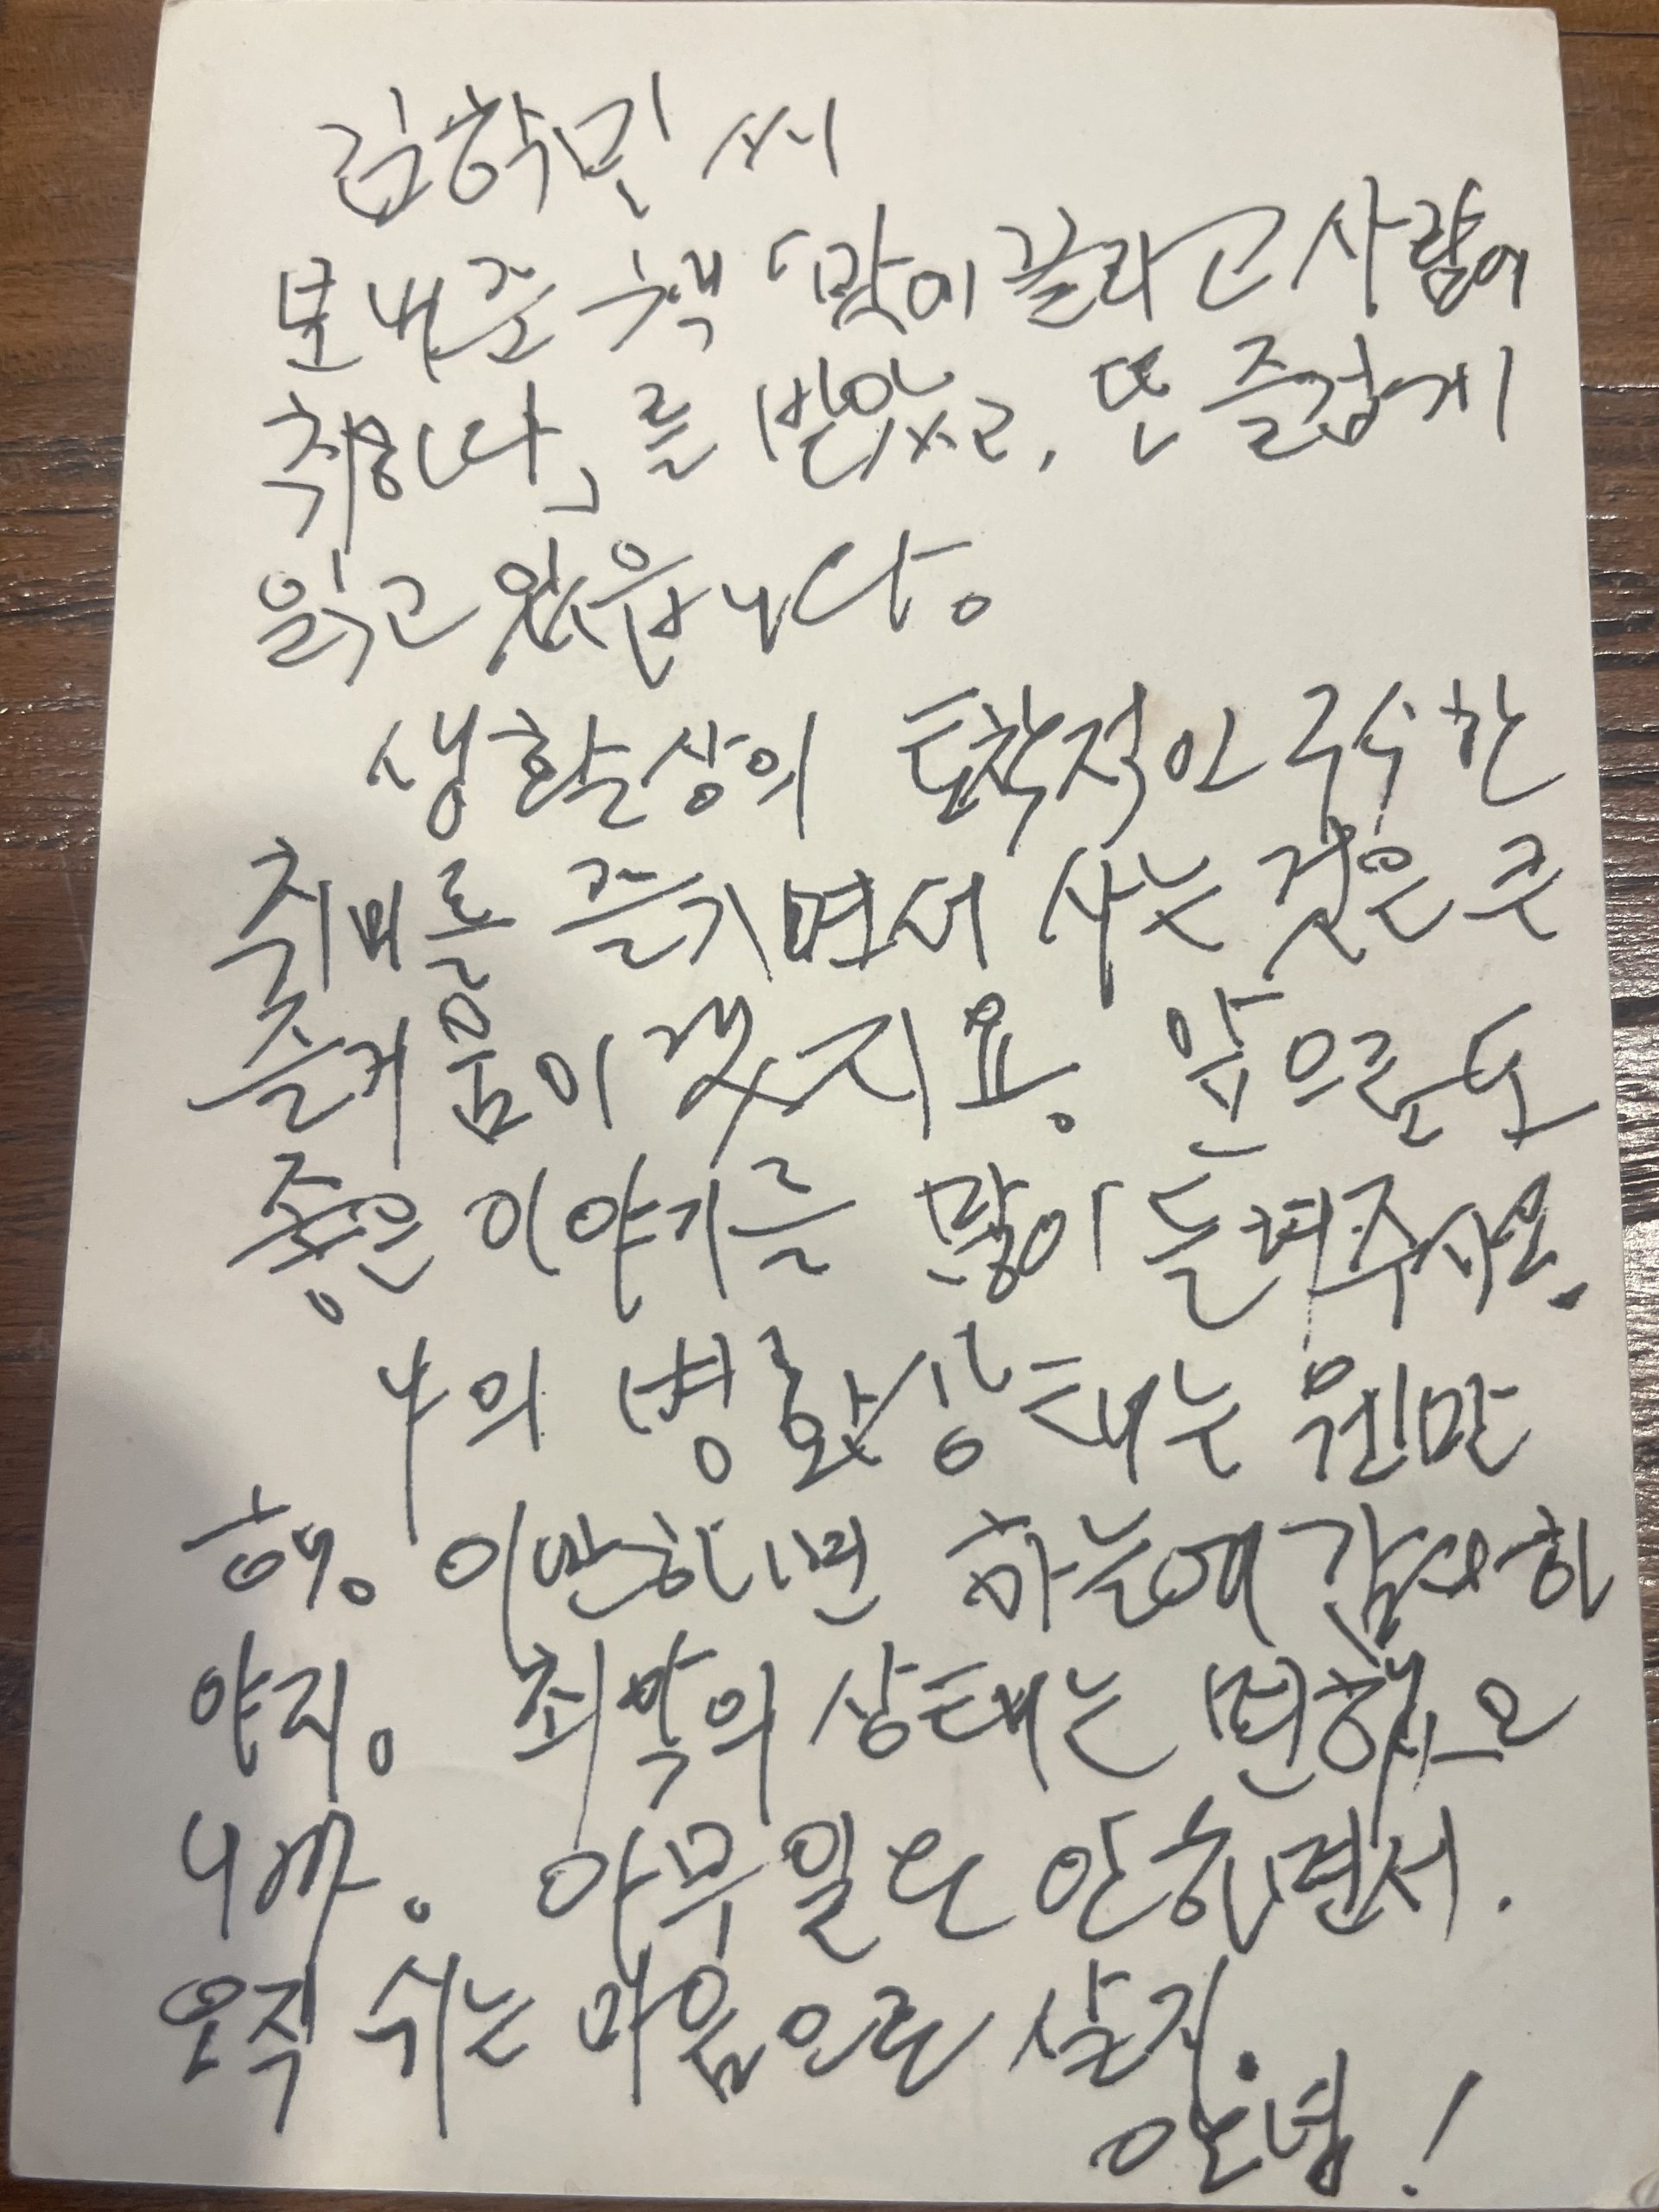 김학민 씨
보내준 책 「맛에 끌리고 사람에
취하다」를 받았고, 또 즐겁게
읽고 있읍니다。
생활상의 토착적인 구수한
취미를 즐기면서 사는 것은 큰
즐거움이겠지요。 앞으로도
좋은 이야기를 많이 들려주시오.
나의 병화상태는 웬만
해。 이만하면 하늘에 감사해
야지。 최악의 상태는 면했으
니까。 아무 일도 안하면서.
오직 쉬는 마음으로 살지.
안녕!